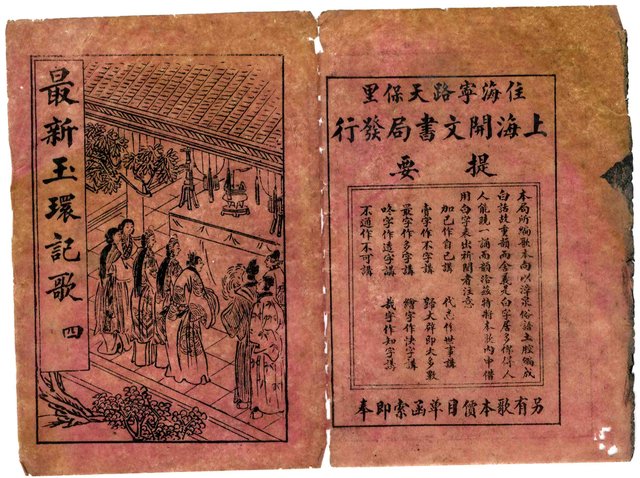 最新玉環記歌 四
住海寧路天保里
上海開文書局發行
提要
本局所編歌本向以漳泉俗語土腔編成
白話技重韻而含義是白字居多俾得人
人能曉一誦而韻洽茲特將本歌內中借
用白字表出祈閱者注意
加己作自己講 代志作世事講
賣字作不字講 大辟即大多數
最字作多字講 字作決字講
咚字作透字講 栽字作知字講
不通作不可講
另有歌本價目單函索即奉